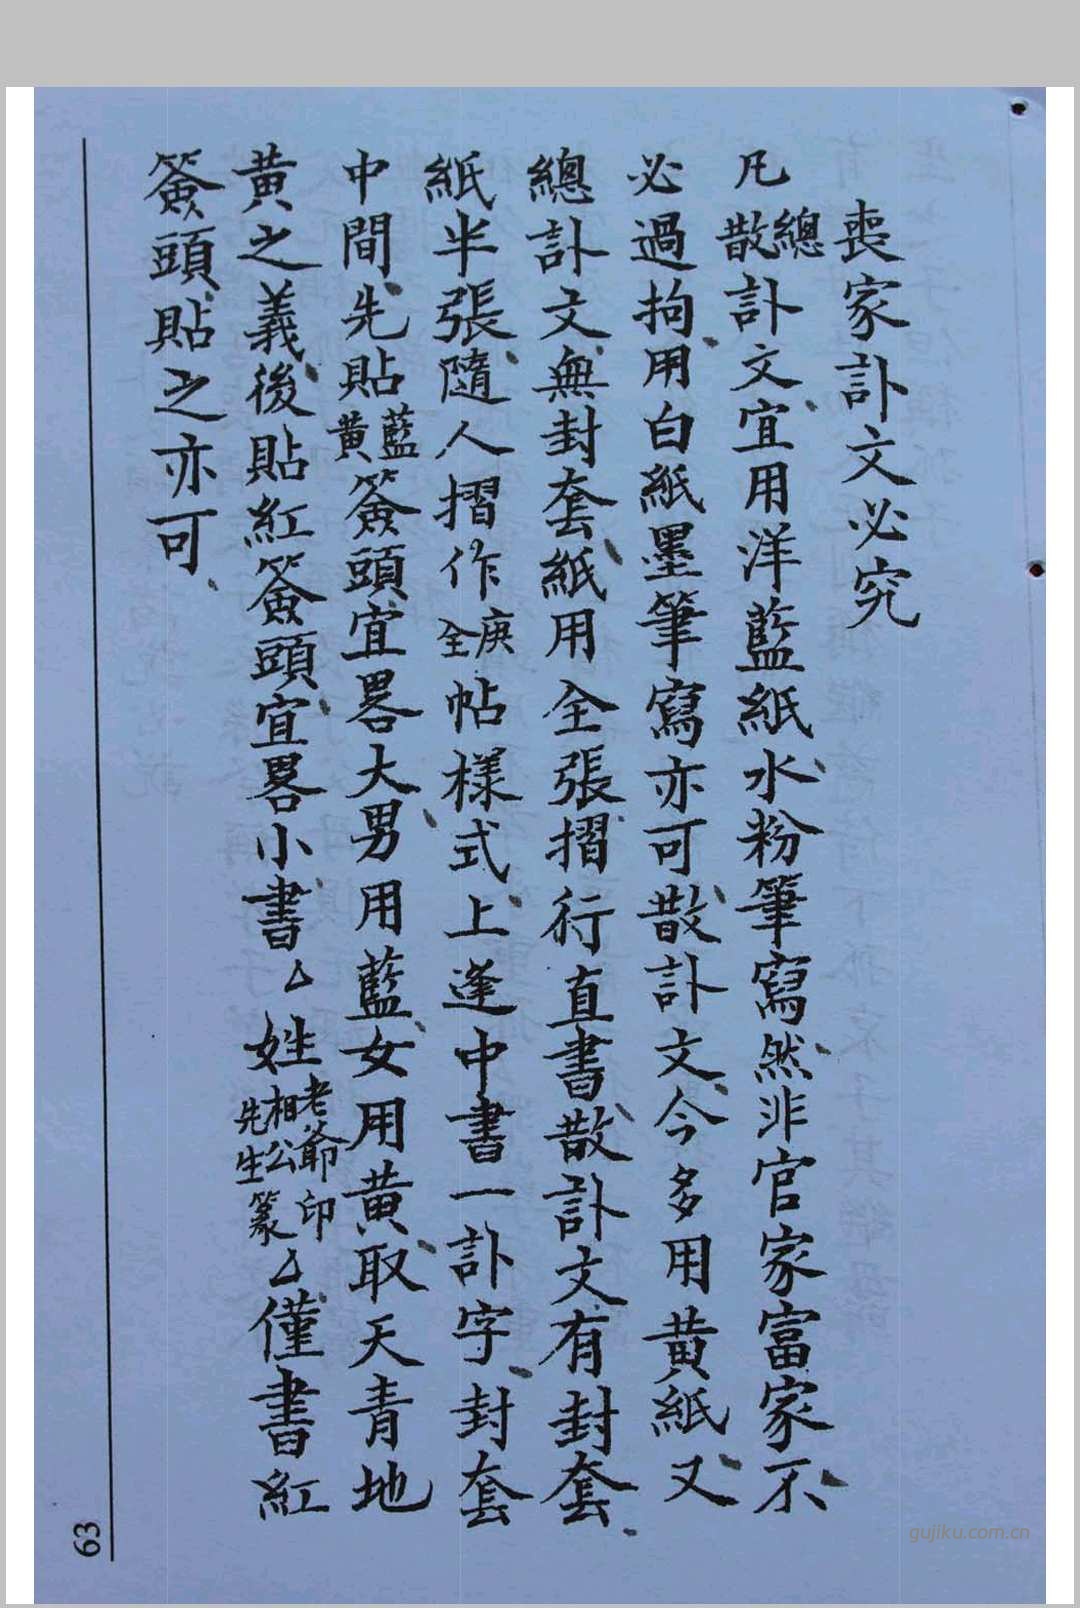 喪家訃文必究
凡總散訃文宜用洋藍紙水粉筆寫然非官家富家不
必過拘用白紙墨筆寫亦可散訃文今多用黃紙又
總訃文無封套紙用全張摺行直書散訃文有封套
紙半張隨人摺作庚全帖樣式上逢中書一訃字封套
中間先貼藍黃簽頭宜畧大男用藍女用黃取天青地
黃之義後貼紅簽頭宜畧小書厶姓老爺相公先生印篆厶僅書紅
簽頭貼之亦可
63
gujiku.com.cn